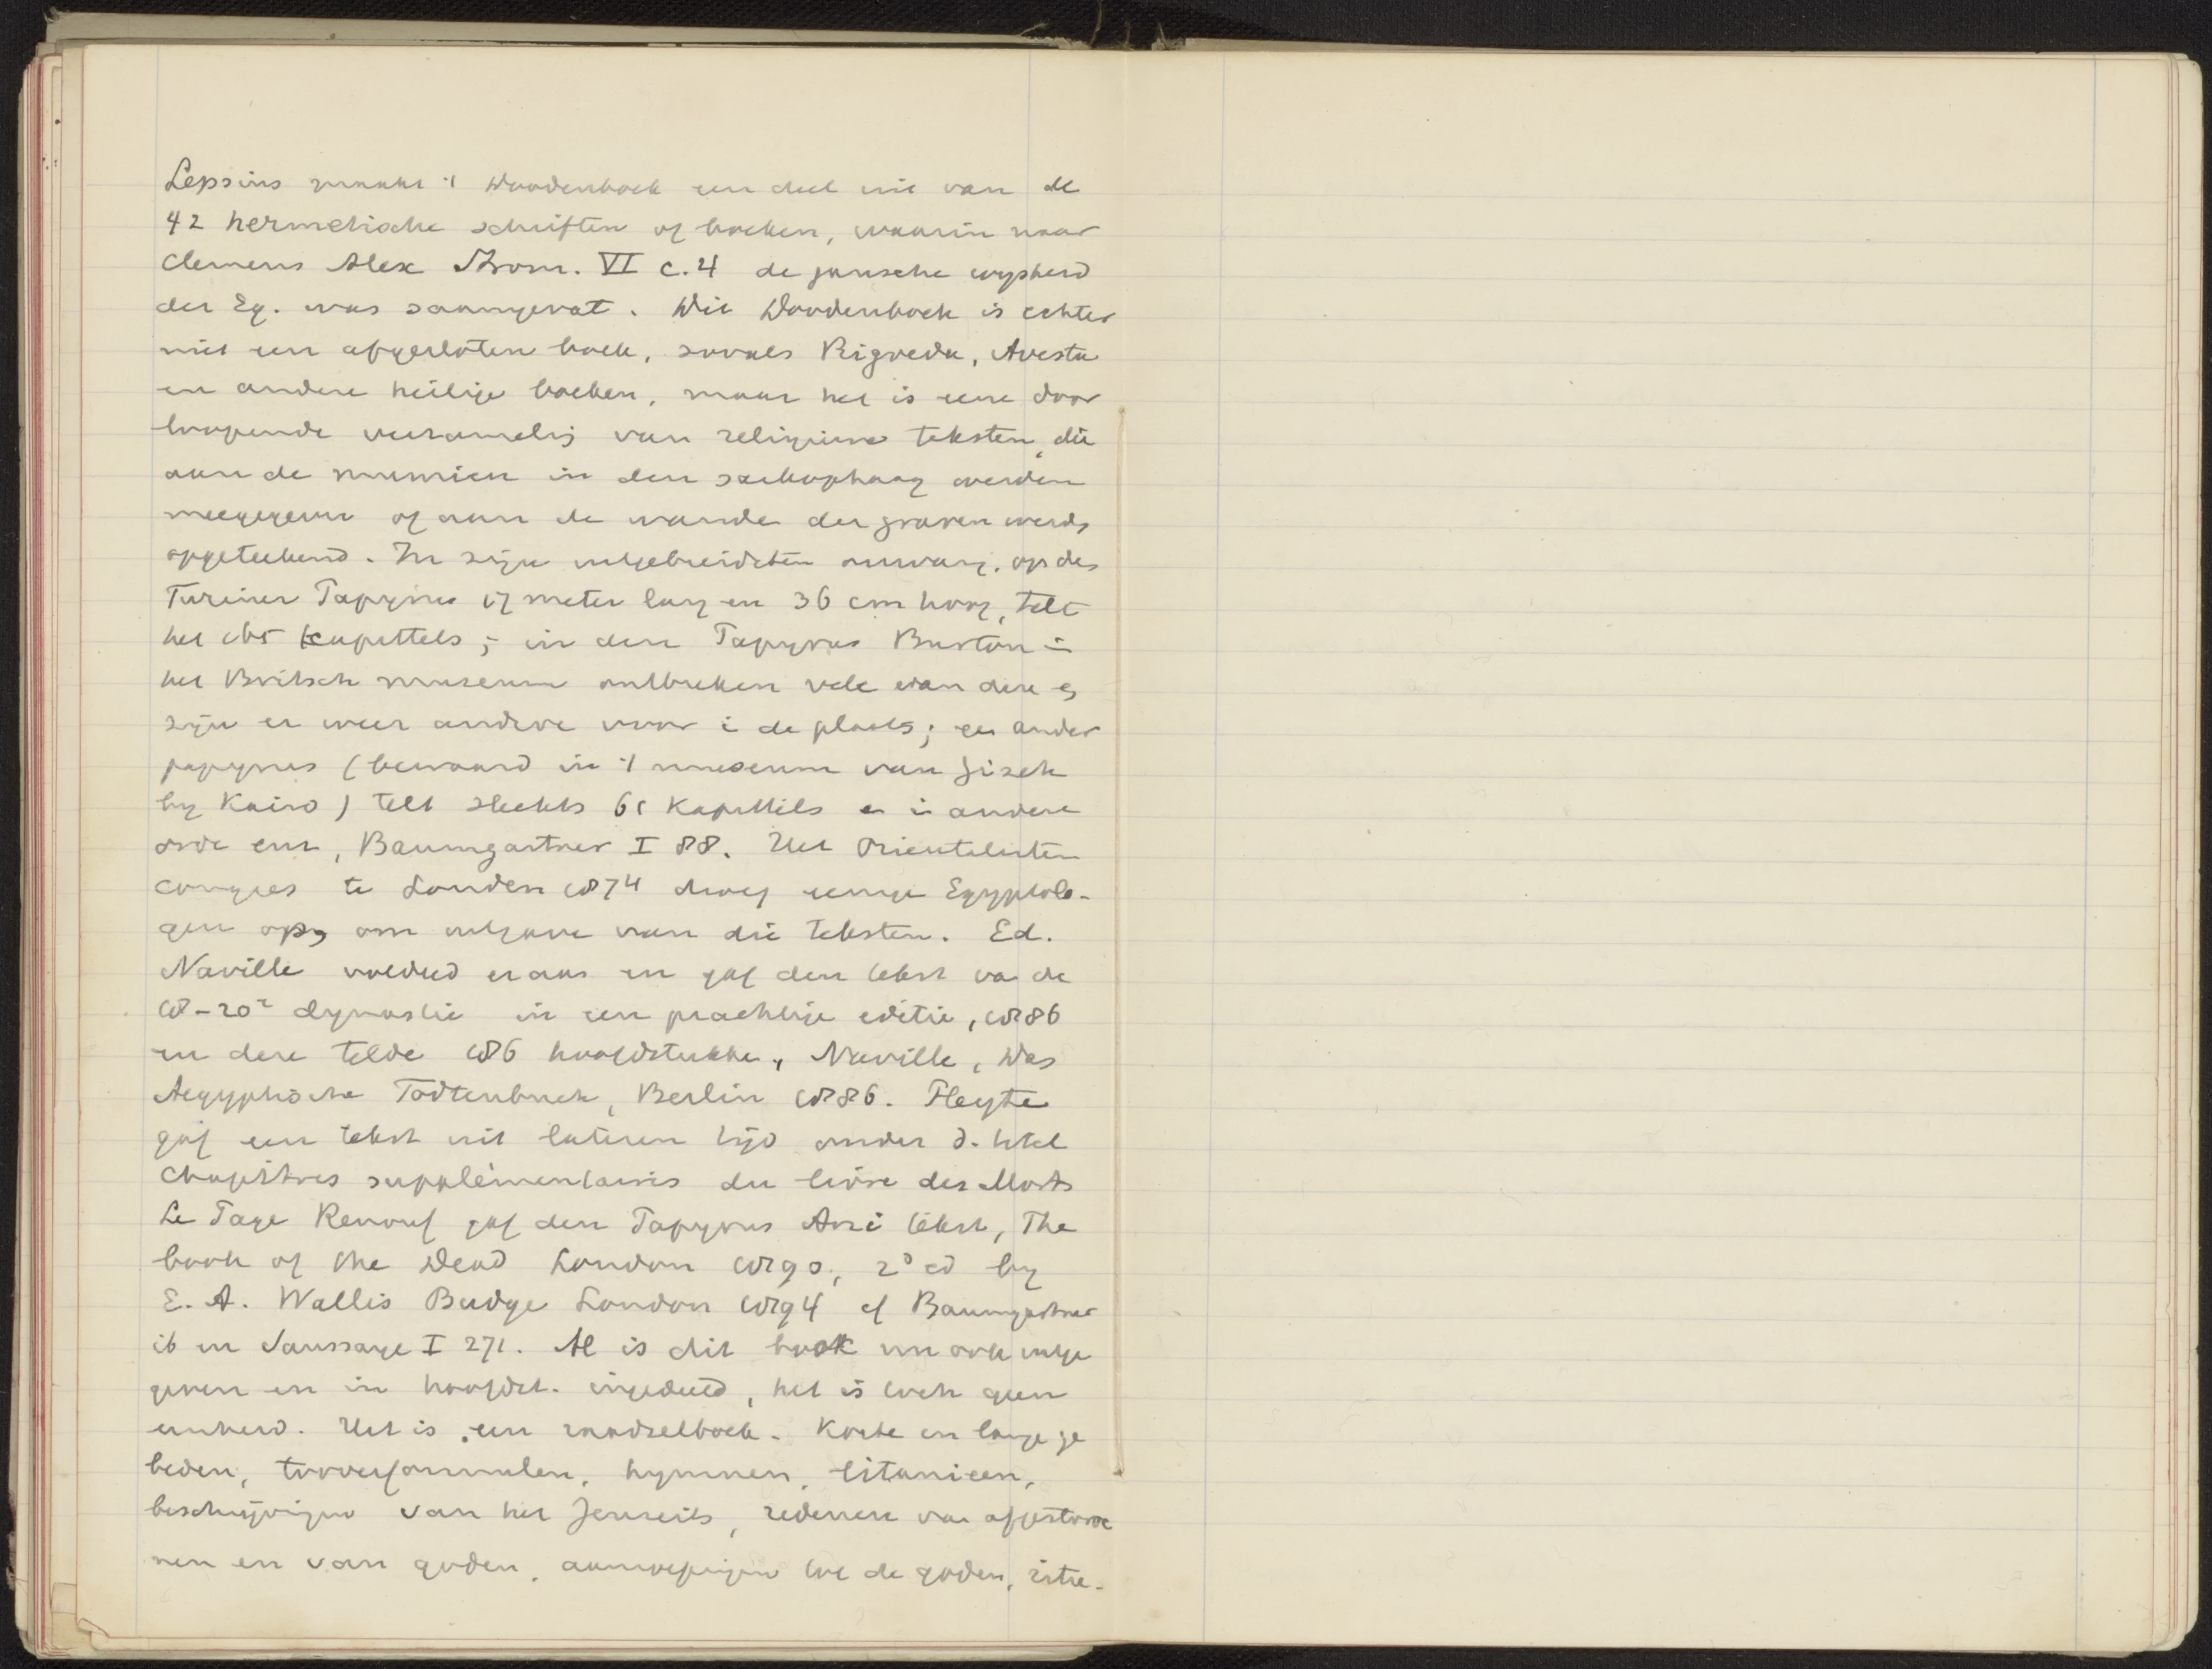 Lepsius maakt 't Doodenboek een deel uit van de
42 hermetische schriften of boeken, waarin naar
Clemens Alex Strom. VI c. 4 de gansche wijsheid
der Eg. was saamgevat. Dit Doodenboek is echter
niet een afgesloten boek, zooals Rigveda, Avesta
en andere heilige boeken, maar het is eene door
loopende verzamelg van religieuse teksten, die
aan de mumien in den sarkophaag werden
meegegeven of aan de wanden der graven werds
opgeteekend. In zijn uitgebreidsten omvang, op des
Turiner Papyrus 17 meter lang en 36 cm hoog, telt
het 165 kapittels; in den Papyrus Burton in
het Britsch museum ontbreken vele van deze en
zijn er weer andere voor i de plaats; een ander
papyrus (bewaard in 't museum van Gizeh
by Kairo) telt slechts 61 Kapittels en in andere
orde enz, Baumgartner I 88. Het Orientalisten
congres te Londen 1874 droeg eenige Egyptolo-
gen op, om uitgave van die teksten. Ed.
Naville voldeed eraan en gaf den tekst va de
18-20e dynastie in een prachtige editie, 1886
en deze telde 186 hoofdstukken, Naville, Das
Aegyptische Todtenbuch, Berlin 1886. Pleyte
gaf een tekst uit lateren tijd onder d. titel
Chapitres supplémentaires du livre des Morts
Le Page Renouf gaf den Papyrus Ani tekst, The
book of the Dead London 1890, 2d ed by
E. A. Wallis Budge London 1894 cf Baumgartner
ib en Saussaye I 271. Al is dit boek nu ook uitge
geven en in hoofdst. ingedeeld, het is toch geen
eenheid. Het is een raadselboek. Korte en lange ge
beden, tooverformulen, hymnen, litanieen,
beschrijvingen van het Jenseits, redenen van afgestorve
nen en van goden, aanroepingen tot de goden, ritu-